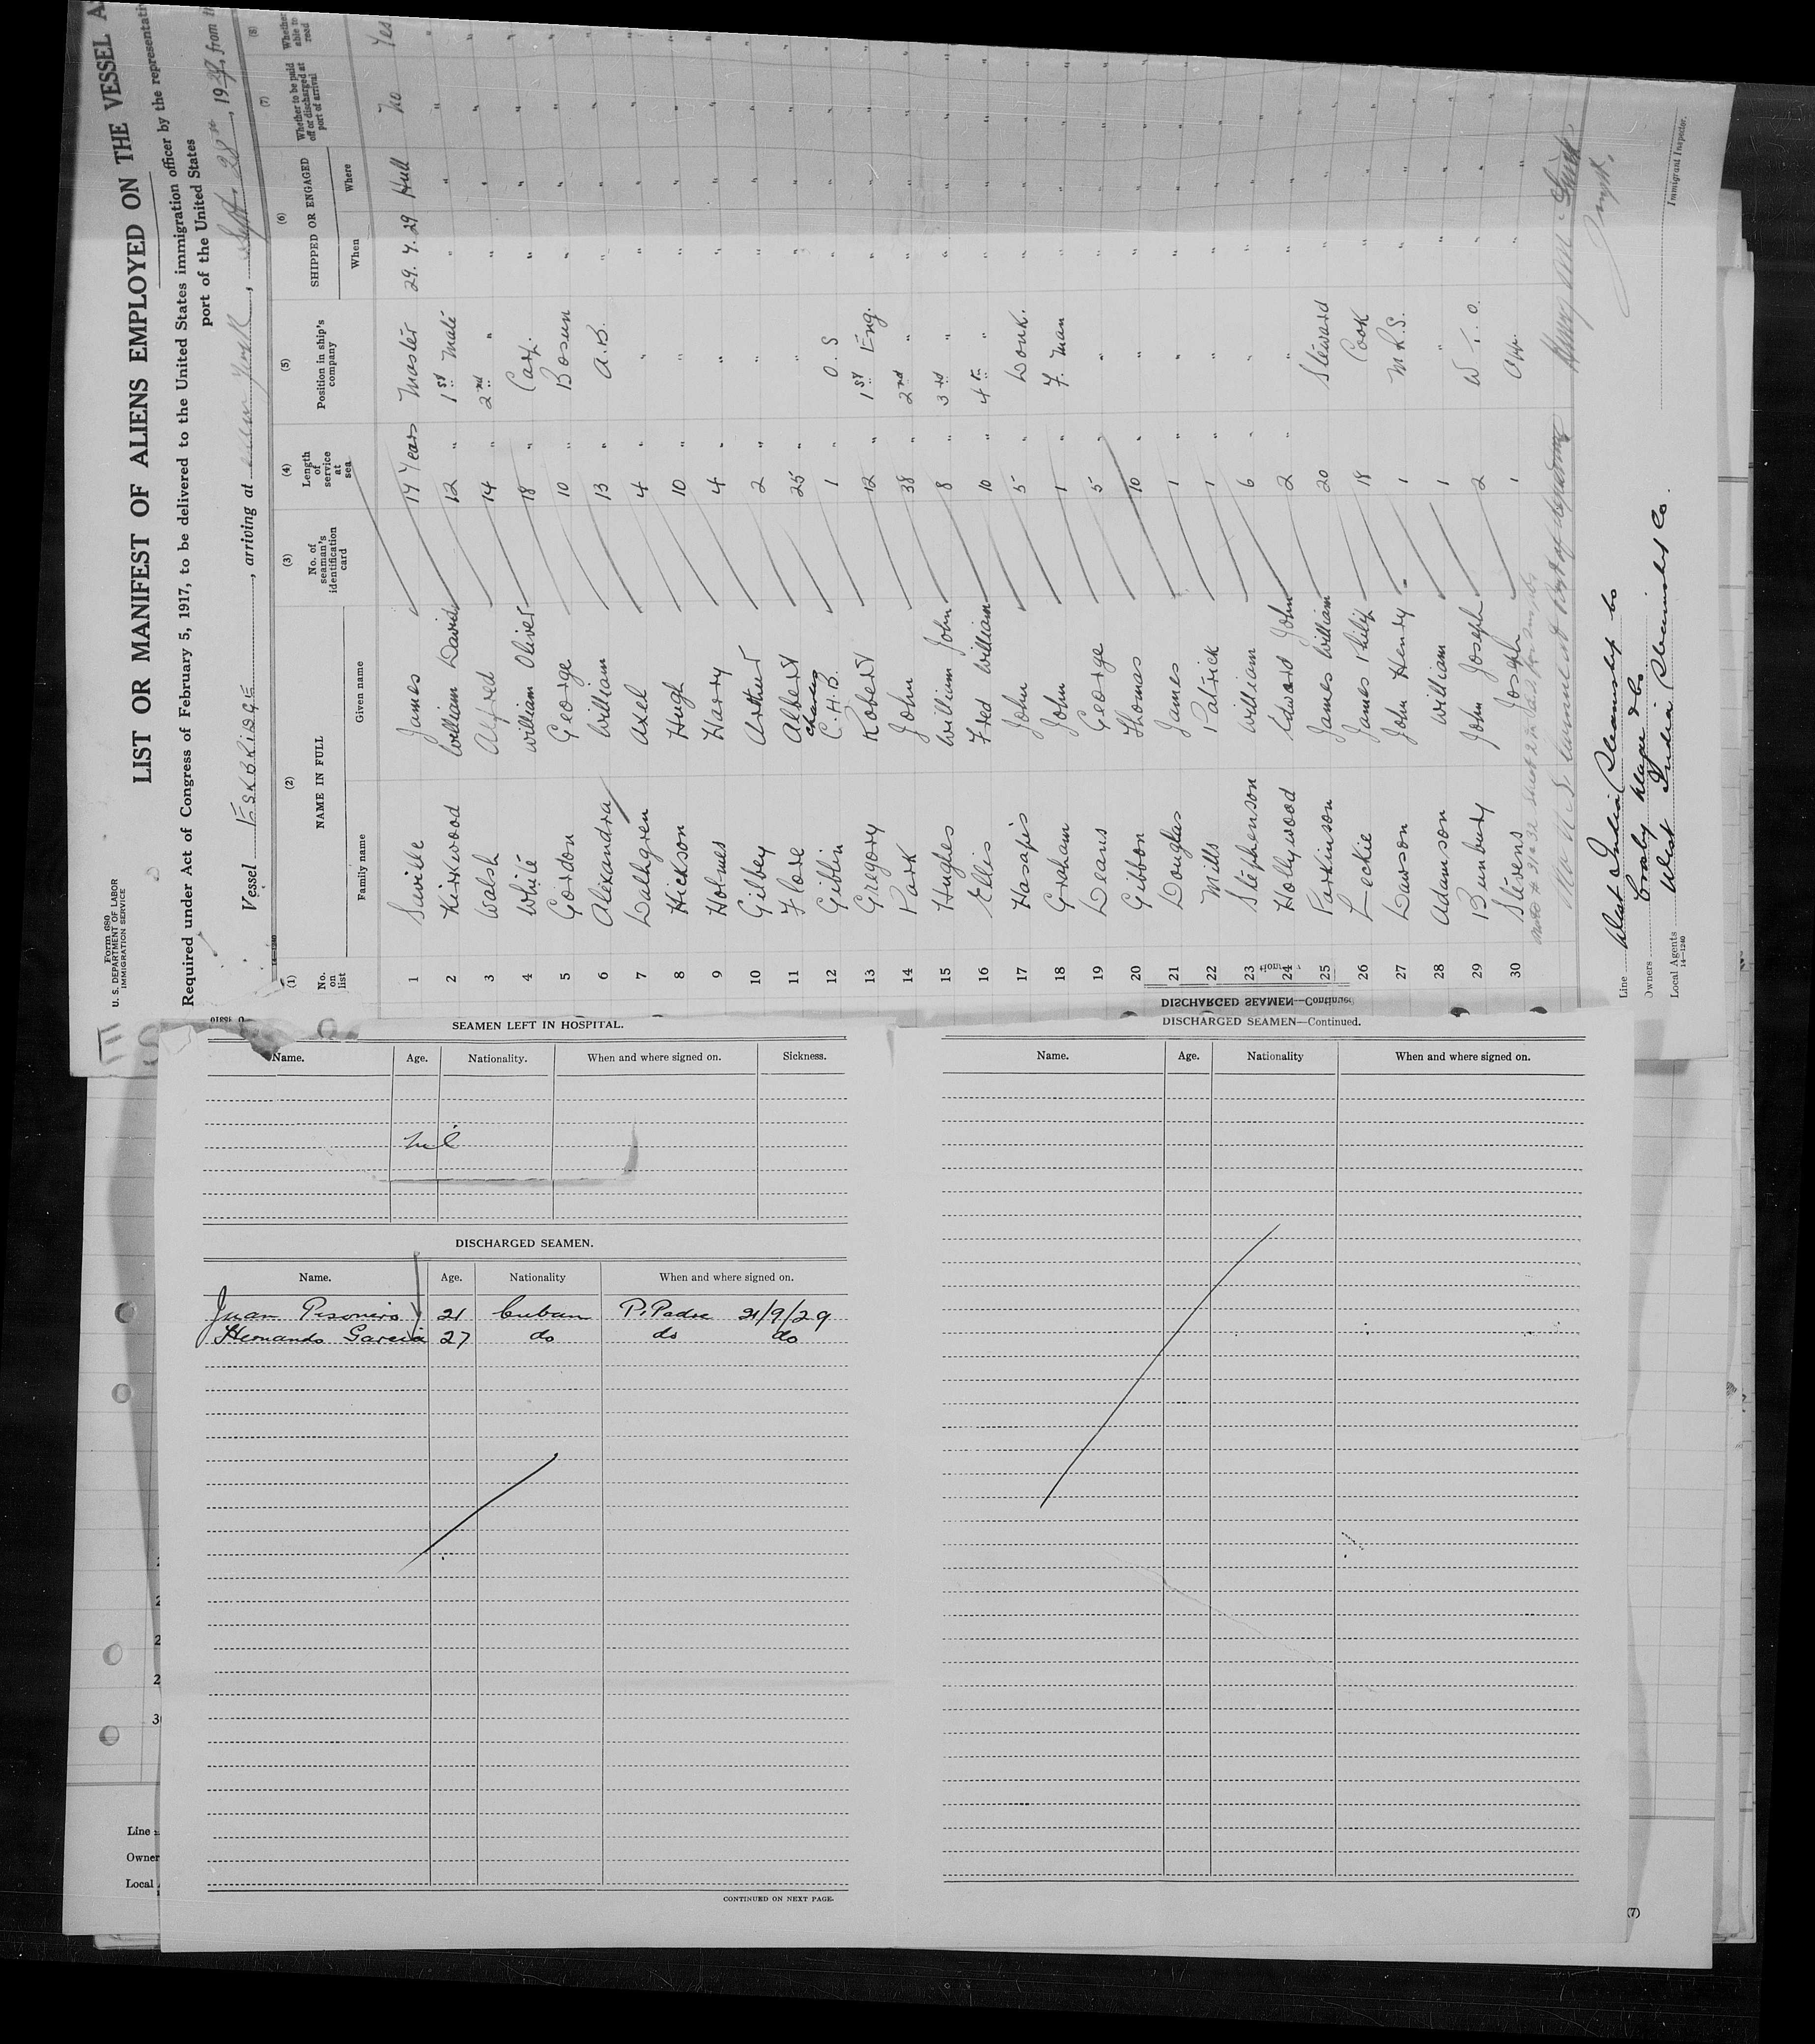 Form 680
U. S. DEPARTMENT OF LABOR
IMMIGRATION SERVICE
LIST OR MANIFEST OF ALIENS EMPLOYED ON THE VESSEL A
Required under Act of Congress of February 5, 1917, to be delivered to the United States immigration officer by the representati
port of the United States
Vessel ESKBRIDGE, arriving at York, Sept. 28th, 1929, from
(1) (2) (3) (4) (5) (6) (7) (8)
No. on list
NAME IN FULL
Family name Given name
No. of seaman's identification card
Length of service at sea
Position in ship's company
SHIPPED OR ENGAGED
When Where
Whether to be paid off or discharged at port of arrival
Whether able to read
1 Saville James 14 Years Master 29. 4. 29 Hull No Yes
2 Kirkwood William David 12 " 1st Mate " " " "
3 Walsh Alfred 14 " 2nd " " " " "
4 White William Oliver 18 " Carp. " " " "
5 Gordon George 10 " Bosun " " " "
6 Alexandra William 13 " A.B. " " " "
7 Dalhgren Axel 4 " " " " " "
8 Hickson Hugh 10 " " " " " "
9 Holmes Harry 4 " " " " " "
10 Gilbey Arthur 2 " " " " " "
11 Flore Albert Charles 25 " " " " " "
12 Giblin C.H.B. 1 " O.S " " " "
13 Gregory Robert 12 " 1st Eng. " " " "
14 Park John 38 " 2nd " " " " "
15 Hughes William John 8 " 3rd " " " " "
16 Ellis Fred William 10 " 4th " " " " "
17 Hasapis John 5 " Donk. " " " "
18 Graham John 1 " F. man " " " "
19 Deans George 5 " " " " " "
20 Gibbon Thomas 10 " " " " " "
21 Douglas James 1 " " " " " "
22 Mills Patrick 1 " " " " " "
23 Stephenson William 6 " " " " " "
24 Hollywood Edward John 2 " " " " " "
25 Parkinson James William 20 Steward " " " "
26 Leckie James Philip 18 Cook " " " "
27 Dawson John Henry 1 M.R.S. " " " "
28 Adamson William 1 " " " " "
29 Bunbury John Joseph 2 W.T.O. " " " "
30 Stevens Joseph 1 App. " " " "
Line West India Steamship Co
Owners Crosby Magee & Co
Local Agents West India Steamship Co.
14—1240
Immigrant Inspector.
DISCHARGED SEAMEN—Continued
SEAMEN LEFT IN HOSPITAL.
Name. Age. Nationality. When and where signed on. Sickness.
nil
DISCHARGED SEAMEN.
Name. Age. Nationality When and where signed on.
Juan Pesoneiro 21 Cuban P. Padre 21/9/29
Hernando Garcia 27 do do do
CONTINUED ON NEXT PAGE.
DISCHARGED SEAMEN—Continued.
Name. Age. Nationality When and where signed on.
Line
Owner
Local